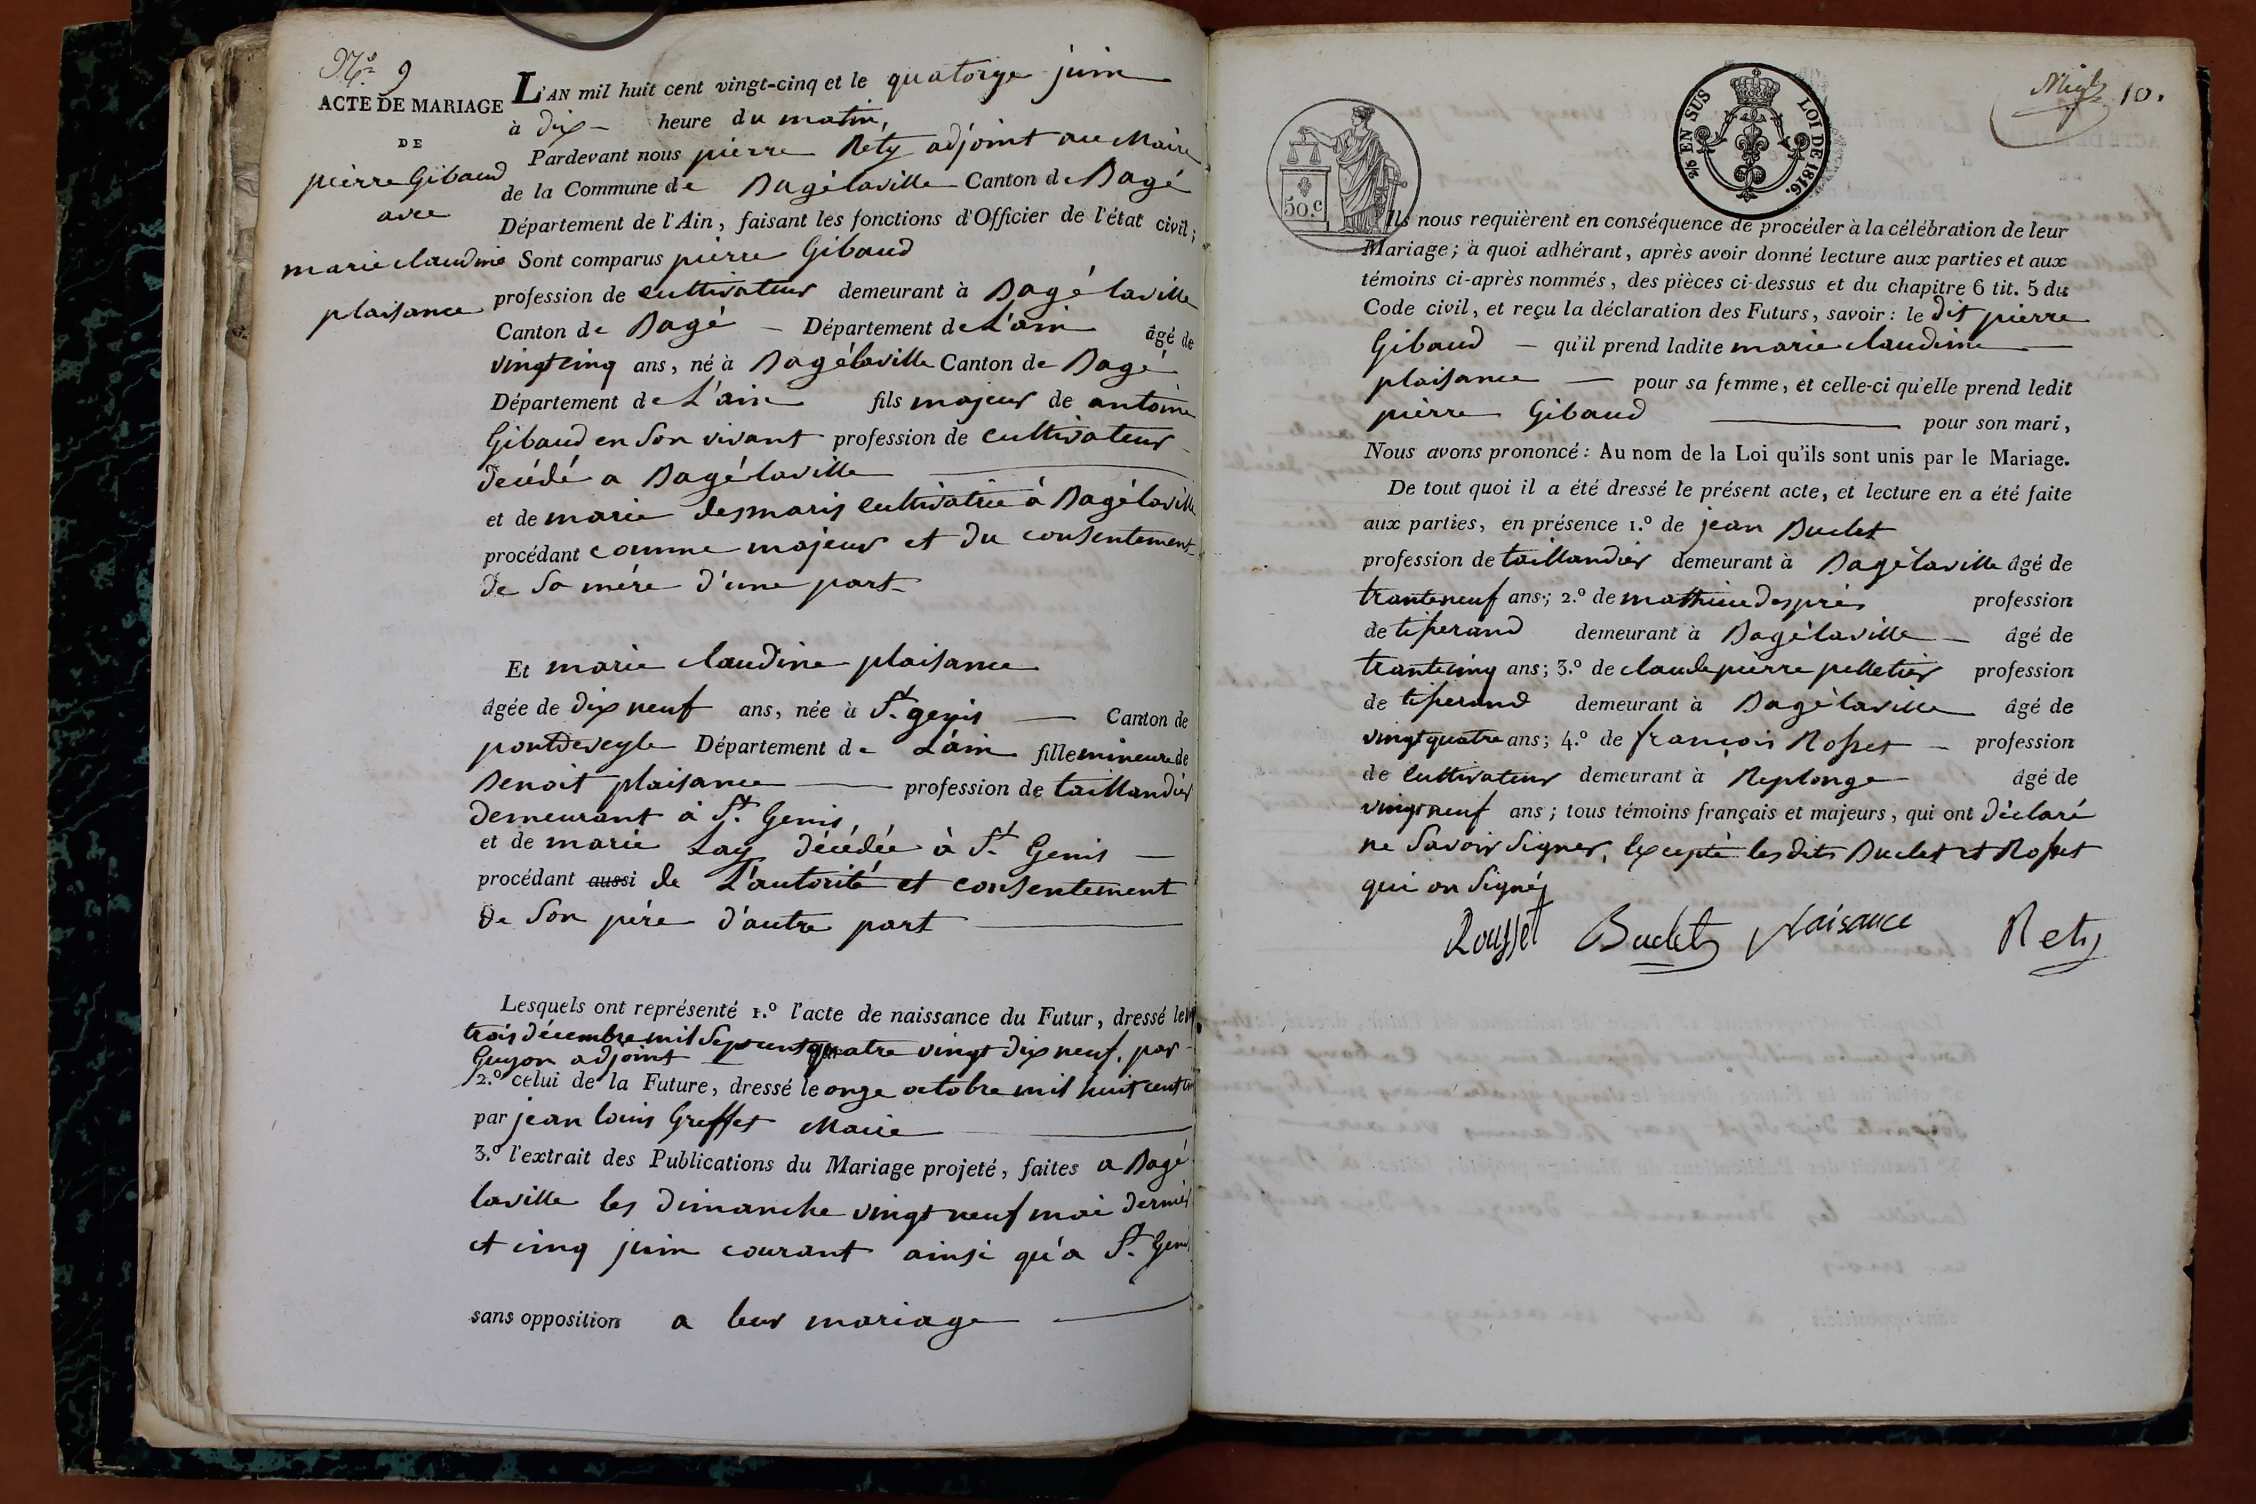 N.º 9
ACTE DE MARIAGE
DE
pierre Gibaud
avec
marie claudine
plaisance
L'AN mil huit cent vingt-cinq et le quatorze juin
à dix heure du matin,
Pardevant nous pierre Rety adjoint au Maire
de la Commune de Bagélaville Canton de Bagé
Département de l'Ain, faisant les fonctions d'Officier de l'état civil;
Sont comparus pierre Gibaud
profession de cultivateur demeurant à Bagé laville
Canton de Bagé – Département de L'ain âgé de
vingt cinq ans, né à Bagélaville Canton de Bagé
Département de L'ain fils majeur de antoine
Gibaud en son vivant profession de cultivateur
décédé a Bagélaville
et de marie desmaris cultivatrice à Bagélaville
procédant comme majeur et du consentement
de sa mére d'une part
Et marie claudine plaisance
âgée de dix neuf ans, née à St. genis — Canton de
pontdeveyle Département de L'ain fille mineure de
Benoit plaisance — profession de taillandier
demeurant à St. Genis,
et de marie Lay décédée à St. Genis —
procédant aussi de L'autorité et consentement
de son pére d'autre part
Lesquels ont représenté 1.º l'acte de naissance du Futur, dressé le
trois décembre mil sept cent quatre vingt dix neuf, par
Guyon adjoint
2.º celui de la Future, dressé le onze octobre mil huit cent
par jean louis Greffet Maire
3.º l'extrait des Publications du Mariage projeté, faites a Bagé
laville les dimanche vingt neuf mai dernier
et cinq juin courant ainsi qu'a St. Genis
sans opposition a leur mariage
10.
2/6 EN SUS LOI DE 1816.
50.c
Ils nous requièrent en conséquence de procéder à la célébration de leur
Mariage; à quoi adhérant, après avoir donné lecture aux parties et aux
témoins ci-après nommés, des pièces ci-dessus et du chapitre 6 tit. 5 du
Code civil, et reçu la déclaration des Futurs, savoir: le dit pierre
Gibaud — qu'il prend ladite marie claudine
plaisance — pour sa femme, et celle-ci qu'elle prend ledit
pierre Gibaud — pour son mari,
Nous avons prononcé: Au nom de la Loi qu'ils sont unis par le Mariage.
De tout quoi il a été dressé le présent acte, et lecture en a été faite
aux parties, en présence 1.º de jean Buclet
profession de taillandier demeurant à Bagélaville âgé de
trante neuf ans; 2.º de mathieu després profession
de tisserand demeurant à Bagélaville — âgé de
trante cinq ans; 3.º de claude pierre pelletier profession
de tisserand demeurant à Bagélaville âgé de
vingt quatre ans; 4.º de françois Rosset — profession
de cultivateur demeurant à Replonge âgé de
vingt neuf ans; tous témoins français et majeurs, qui ont déclaré
ne savoir signer, excepté les dits Buclet et Rosset
qui on signé,
Rousset Buclet Plaisance Rety